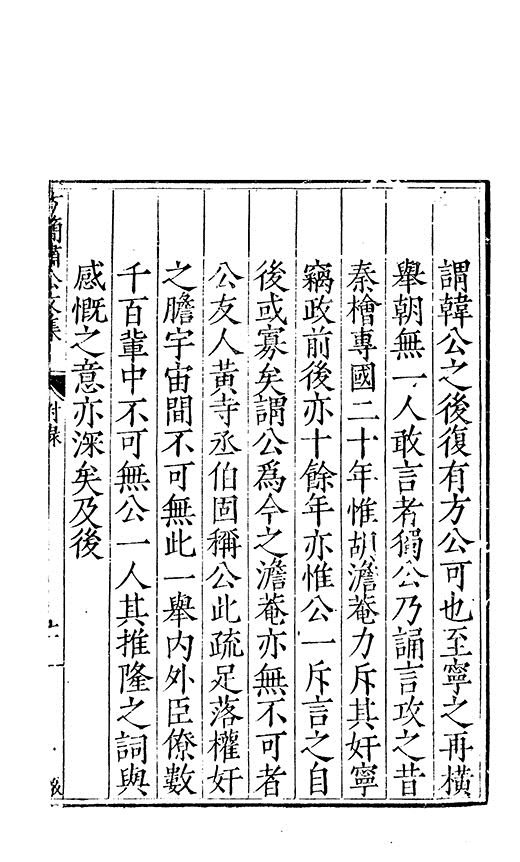 謂韓公之後復有方公可也至寧之再橫
舉朝無一人敢言者獨公乃誦言攻之昔
秦檜專國二十年惟胡澹菴力斥其奸寧
竊政前後亦十餘年亦惟公一斥言之自
後或寡矣謂公爲今之澹菴亦無不可者
公友人黃寺丞伯固稱公此疏足落權奸
之膽宇宙間不可無此一舉內外臣僚數
千百輩中不可無公一人其推隆之詞與
感慨之意亦深矣及後
方簡肅公文集
附錄